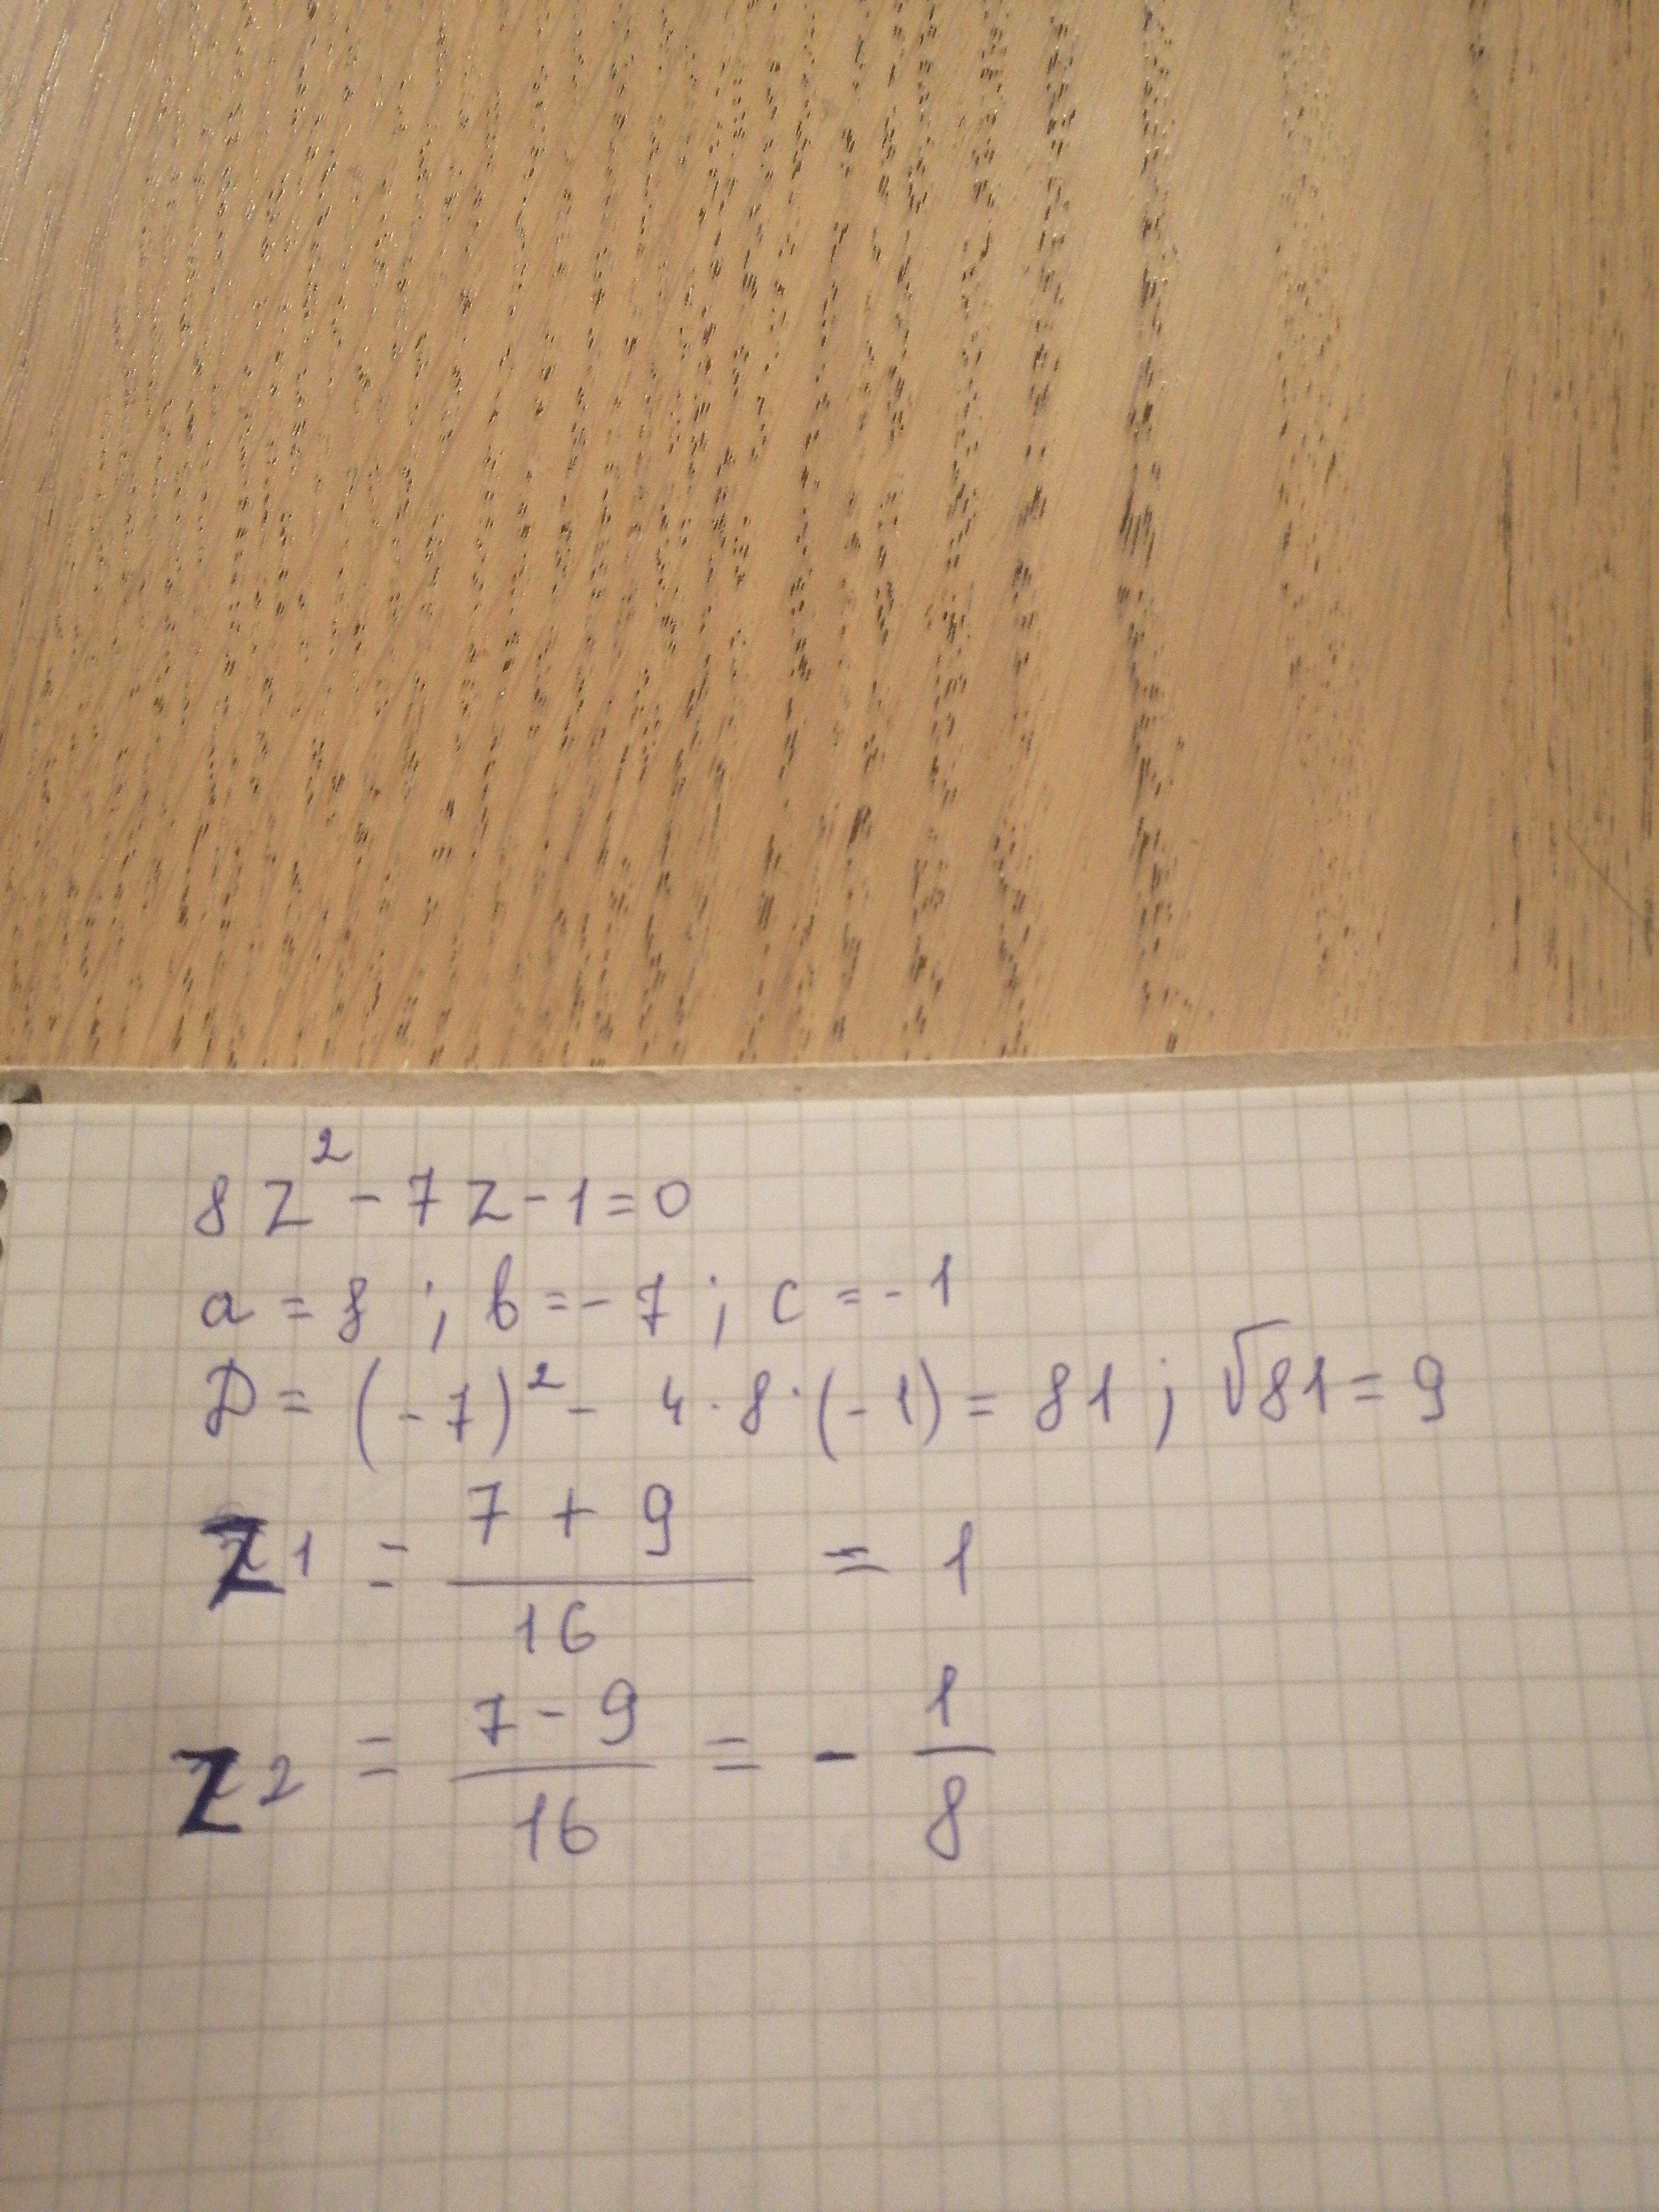 8z² - 7z - 1 = 0
a = 8 ; b = - 7 ; c = - 1
D = (- 7)² - 4 · 8 · (- 1) = 81 ; √81 = 9
z1 = (7 + 9)/16 = 1
z2 = (7 - 9)/16 = - 1/8